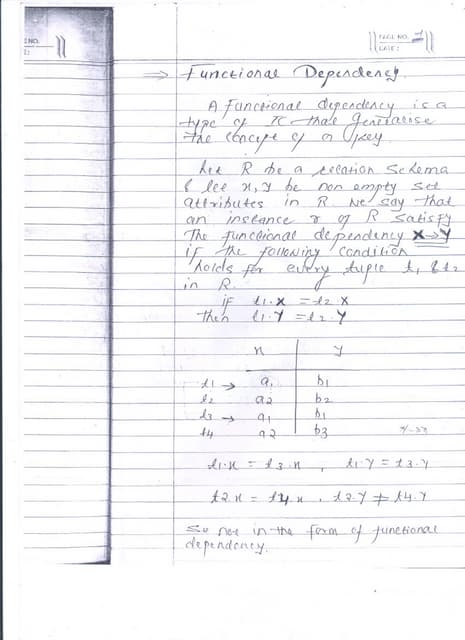 E NO.
PAGE NO. 1
DATE:
⇒ Functional Dependency.
A functional dependency is a
type of IC that Generalise
the concept of a key.
Let R be a relation Schema
& let x, y be non empty set
attributes in R. We say that
an instance r of R satisfy
The functional dependency X→Y
if the following condition
holds for every tuple t1 & t2
in R.
if t1.X = t2 X
then t1.Y = t2.Y
x y
t1 → a1 b1
t2 a2 b2
t3 → a1 b1
t4 a2 b3
t1.x = t3.x , t1.y = t3.y
t2.x = t4 x , t2.y ≠ t4.y
So not in the form of functional
dependency.